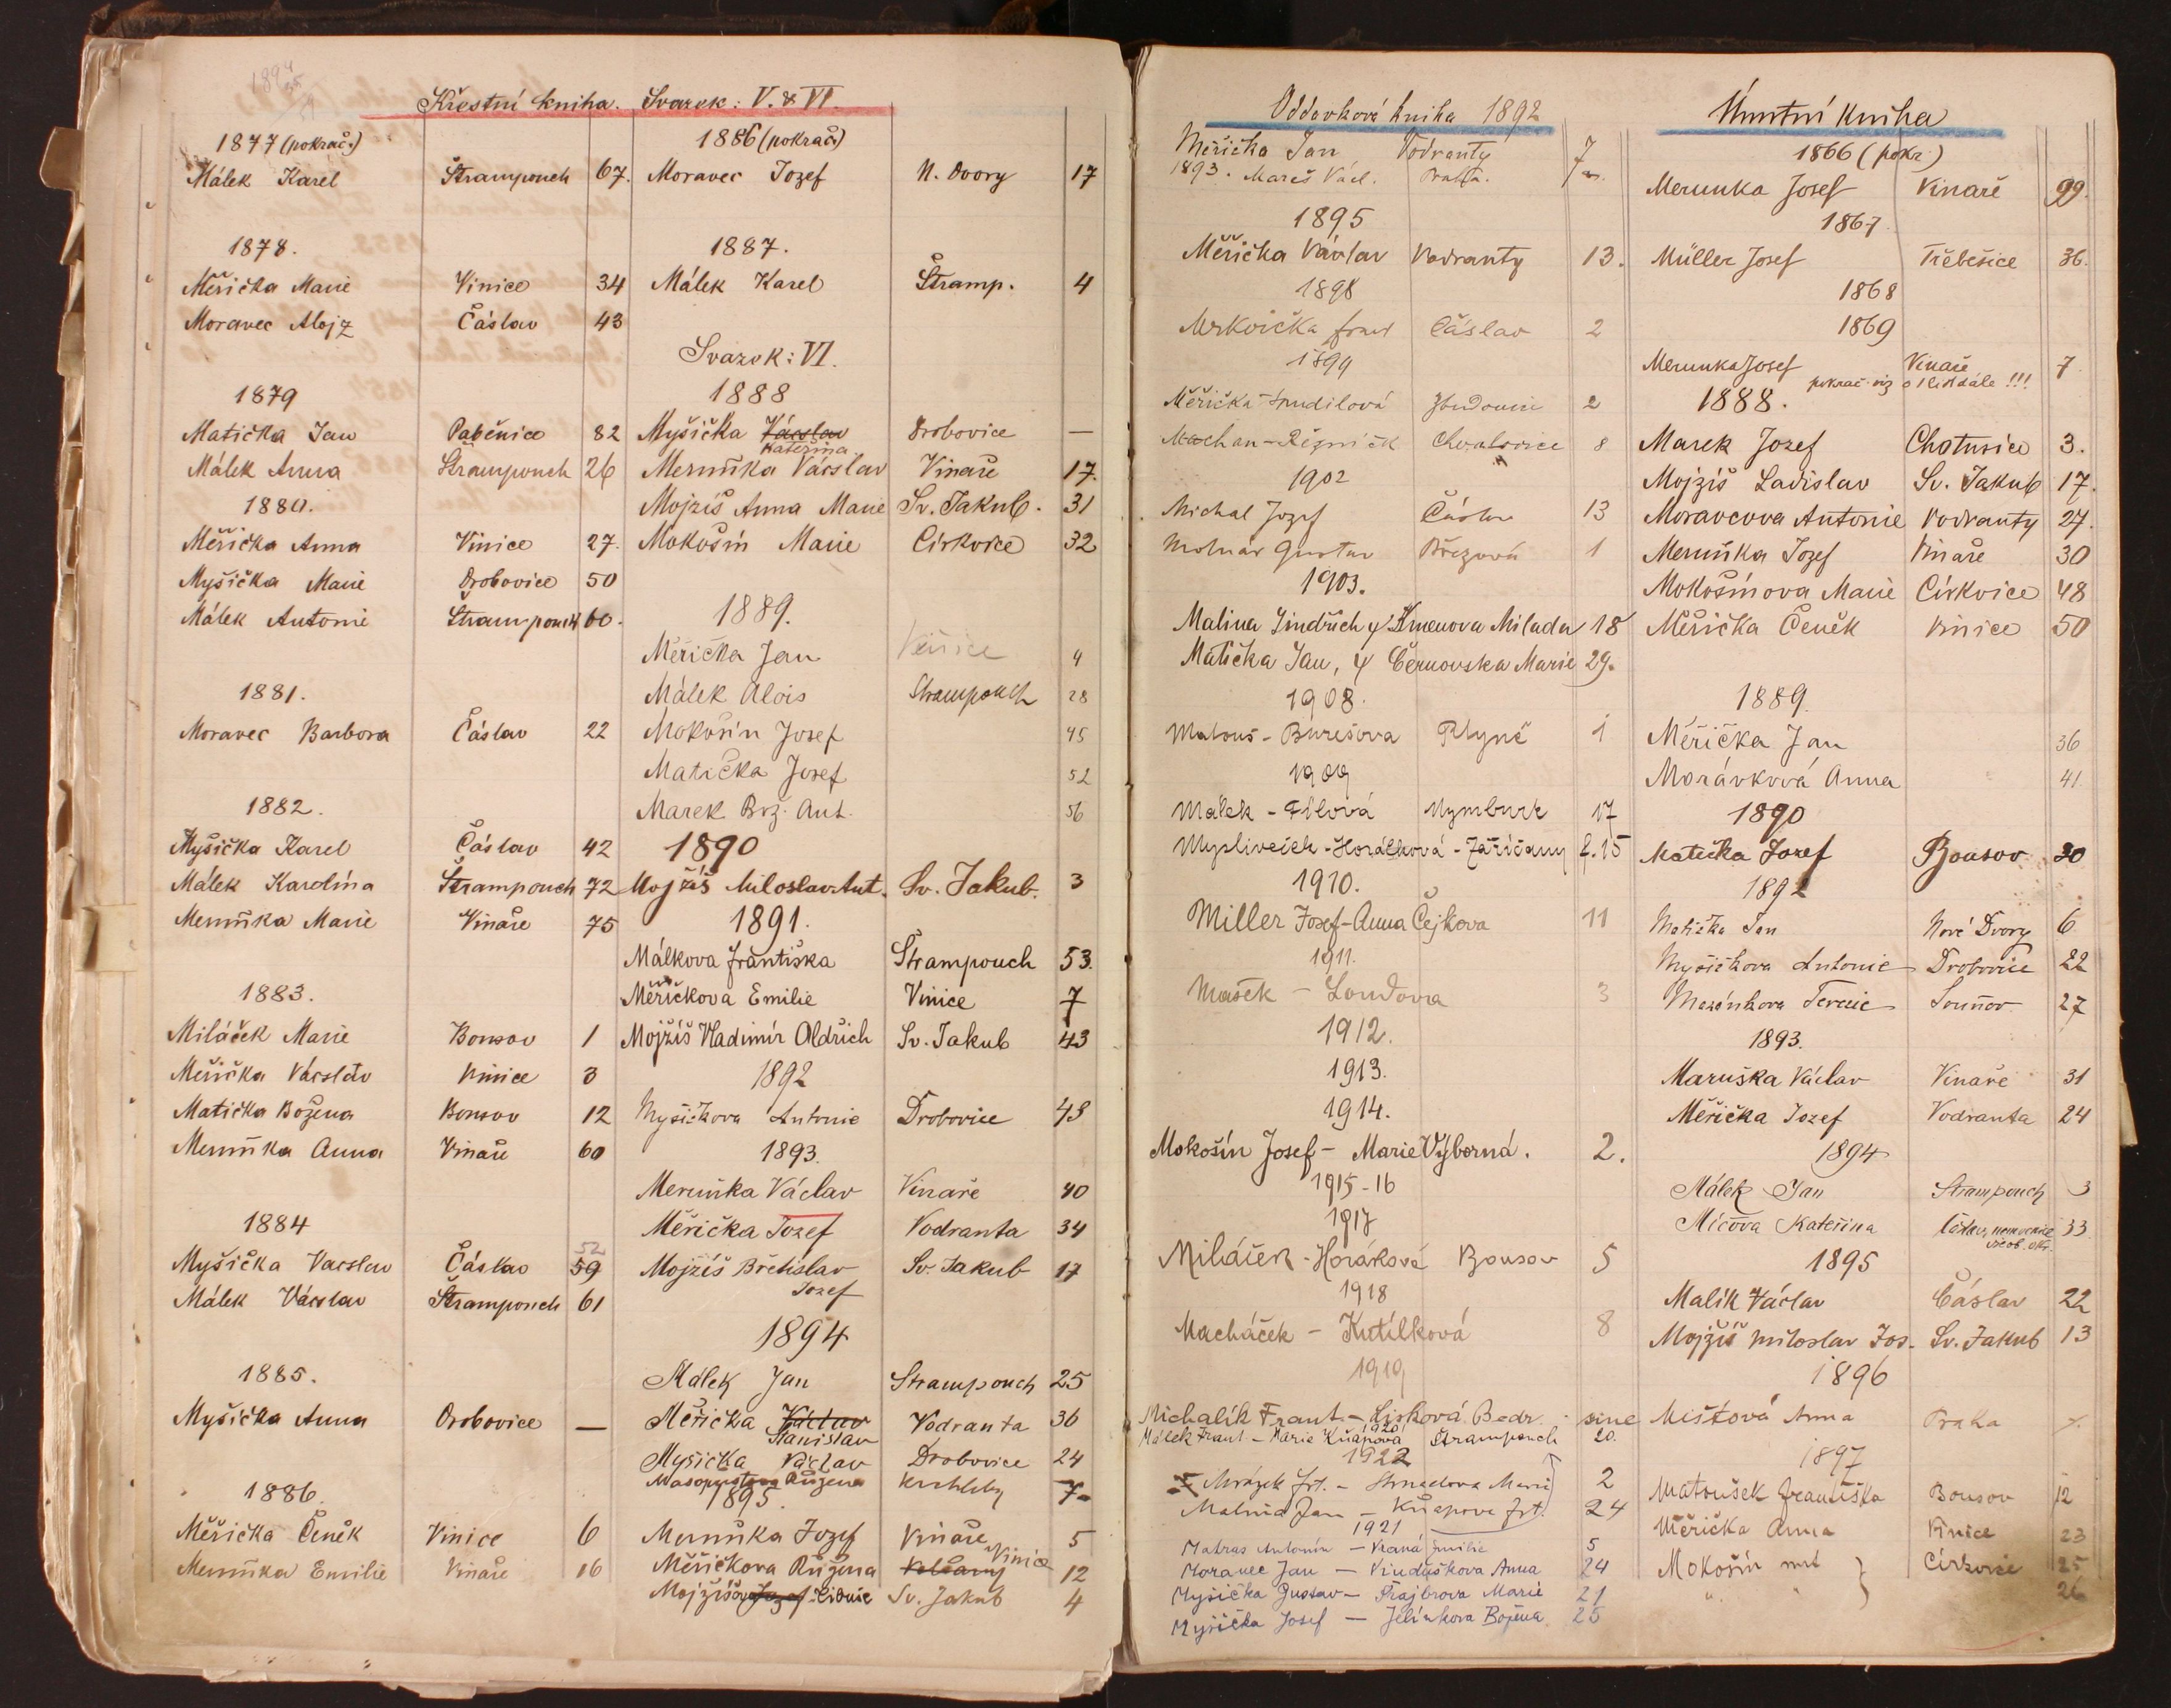 Křestní kniha. Svazek: V. & VI.
1877 (pokrač.)
Málek Karel Štrampouch 67.
1878.
Měřička Marie Vinice 34
Moravec Alojz Čáslav 43
1879
Matička Jan Paběnice 82
Málek Anna Štrampouch 26
1880.
Měřička Anna Vinice 27.
Myšička Marie Drobovice 50
Málek Antonie Štrampouch 60.
1881.
Moravec Barbora Čáslav 22
1882.
Myšička Karel Čáslav 42
Málek Karolína Štrampouch 72
Meruňka Marie Vinaře 75
1883.
Miláček Marie Bousov 1
Měřička Václav Vinice 3
Matička Božena Bousov 12
Meruňka Anna Vinaře 60
1884
52
Myšička Vácslav Čáslav 59
Málek Vácslav Štrampouch 61
1885.
Myšička Anna Drobovice —
1886.
Měřička Čeněk Vinice 6
Meruňka Emilie Vinaře 16
1886 (pokrač)
Moravec Jozef N. Dvory 17
1887.
Málek Karel Štramp. 4
Svazek: VI.
1888
Myšička Vácslav Drobovice —
Kateřina
Meruňka Vácslav Vinaře 17.
Mojžíš Anna Marie Sv. Jakub. 31
Mokošín Marie Církvice 32
1889.
Měřička Jan Vinice 4
Málek Alois Štrampouch 28
Mokošín Josef 45
Matička Josef 52
Marek Brz. Ant. 56
1890
Mojžíš Miloslav Ant. Sv. Jakub. 3
1891.
Málkova Františka Štrampouch 53.
Měřičkova Emilie Vinice 7
Mojžíš Vladimír Oldřich Sv. Jakub 43
1892
Myšičkova Antonie Drobovice 43
1893.
Meruňka Václav Vinaře 40
Měřička Jozef Vodranta 34
Mojžíš Břetislav Sv. Jakub 17
Jozef
1894
Málek Jan Štrampouch 25
Měřička Václav Vodranta 36
Stanislav
Myšička Václav Drobovice 24
Růžena Krchleby 7
1895.
Meruňka Jozef Vinaře 5
Měřičkova Růžena Vinice 12
Mojžíšova Jozef Lidmie Sv. Jakub 4
Oddavková kniha 1892
Měřička Jan Vodranty 7
1893. Mareš Václ. Praha.
1895
Měřička Václav Vodranty 13.
1898
Mrkvička Čáslav 2
1899
Měřička - Spudilová 2
Machan - Řezníček Chvalovice 8
1902
Michal Jozef Čáslav 13
Molnár Gustav Březová 1
1903.
Malina Jindřich Kmenova Milada 18
Matička Jan, Černovska Marie 29.
1908.
Matouš - Burešova Rtyně 1
1909
Málek - Fílová Nymburk 17
Mysliveček - Horáčková - Záříčany f. 15
1910.
Miller Josef - Anna Čejkova 11
1911.
Mašek - Loudova 3
1912.
1913.
1914.
Mokošín Josef - Marie Výborná. 2.
1915-16
1917
Miláček - Horáková Bousov 5
1918
Macháček - Kutílková 8
1919
Michalík Frant. - Lisková Bedr. - sine
1920
Málek Frant - Marie Knápová Štrampouch 20.
1922
Mrázek Frt. - Strnadova Marie 2
Malina Jan - Knapova Frt. 24
1921
Matras Antonín - Vraná Emilie 5
Moravec Jan - Vinduškova Anna 24
Myšička Gustav - Šrajbrova Marie 21
Myšička Josef - Jelínkova Božena 25
Úmrtní kniha
1866 (pokr.)
Merunka Josef Vinaře 99.
1867
Müller Josef Třebešice 36.
1868
1869
Merunka Josef Vinaře 7
pokrač. viz o list dále !!!
1888.
Marek Jozef Chotusice 3.
Mojžíš Ladislav Sv. Jakub 17.
Moravcova Antonie Vodranty 27.
Meruňka Jozef Vinaře 30
Mokošínova Marie Církvice 48
Měřička Čeněk Vinice 50
1889.
Měřička Jan 36
Morávková Anna 41
1890
Matička Jozef Bousov 20
1892
Matička Jan Nové Dvory 6
Myšičkova Antonie Drobovice 22
Terezie Souňov 27
1893.
Maruška Václav Vinaře 31
Měřička Jozef Vodranta 24
1894
Málek Jan Štrampouch 3
Míčova Kateřina Čáslav, nemocnice 33.
1895
Malík Václav Čáslav 22
Mojžíš Miloslav Jos. Sv. Jakub 13
1896
Mištová Anna Praha
1897
Matoušek Františka Bousov 12
Měřička Anna Vinice 23
Mokošín Církvice 25
" " 26